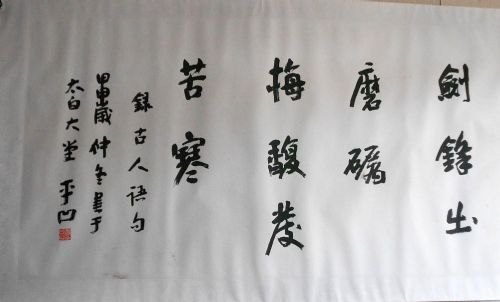 劍鋒出
磨礪
梅馥發
苦寒
錄古人語句
甲申歲仲冬書于
太白大堂 平凹